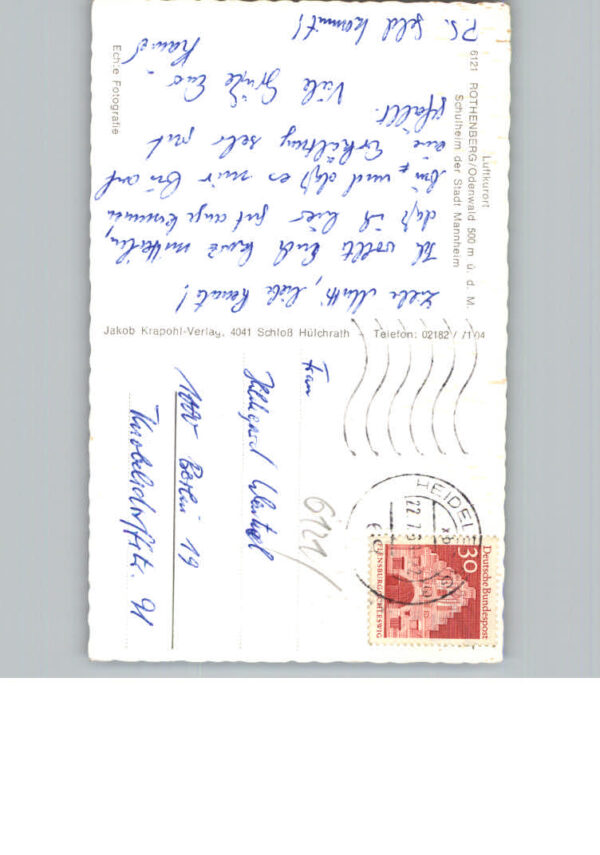 Luftkurort
6121 ROTHENBERG/Odenwald 500 m ü. d. M.
Schulheim der Stadt Mannheim
Liebe Mutti, liebe Renate!
Ich wollte Euch kurz mitteilen,
daß ich hier gut angekommen
bin und daß es mir bis auf
eine Erkältung sehr gut
gefällt.
Viele Grüße Euer
P.S. Geld kommt!
Echte Fotografie
Jakob Krapohl-Verlag, 4041 Schloß Hülchrath - Telefon: 02182 / 71 04
HEIDEL
22.7.
30
Deutsche Bundespost
FLENSBURG/SCHLESWIG
6121/
Frau
Hildegard
1000 Berlin 19
Knobelsdorffstr. 91